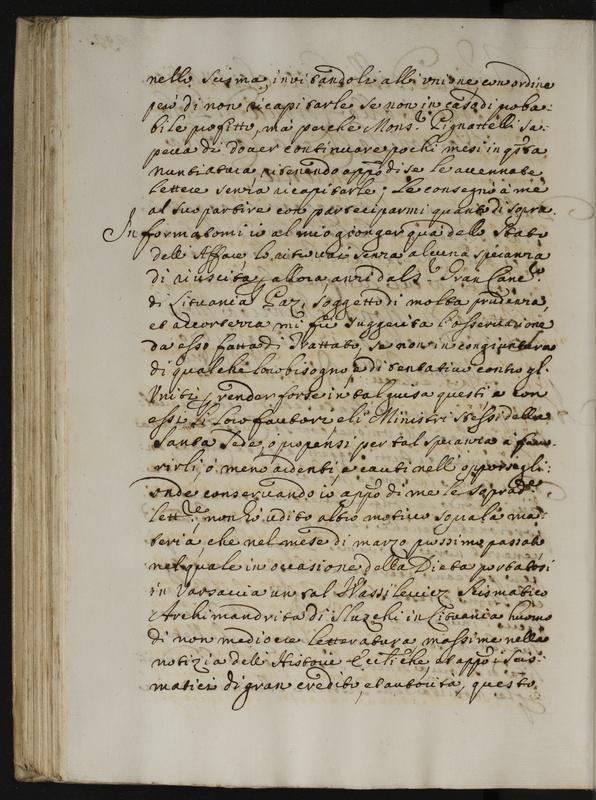 nello scisma, invitandoli all' unione con ordine
però di non ricapitarle se non in caso di proba-
bile profitto, mà perche Mons.r Pignattelli sa-
peva di dover continuare pochi mesi in q.sta
nuntiatura, ritenendo app.o di se le accennate
lettere senza ricapitarle; Le consegnò à me
al suo partire con parteciparmi quanto di sopra.
Informatomi io al mio gionger quà dello stato
dell' Affare lo ritrovai senza alcuna speranza
di riuscita, allora anzi dal S.r Gran Canc.re
di Lituania Paz, soggetto di molta prudenza,
et accortezza mi fù suggerita l' osservatione
da esso fatta di Trattato, se non in congiuntura
di qualche loro bisogno, ò di tentativo contro gl'
Uniti, render forse in tal guisa questi e con
essi li loro fautori e li Ministri stessi della
Santa Sede, ò propensi per tal speranza à favo-
rirli, ò meno ardenti, e cauti nell' opporsegli:
onde conservando io app.o di me le soprad.te
lett.re non hò udito altro motivo sopra la ma-
teria, che nel mese di marzo prossimo passato
nel quale in occasione della Dieta portatosi
in Varsavia un tal Wassilewicz scismatico
Archimandrita di Sluzchi in Lituania huomo
di non mediocre letteratura massime nella
notizia dell' Historie Eccl.che, et app.o i scis-
matici di gran credito, et autorità, questo